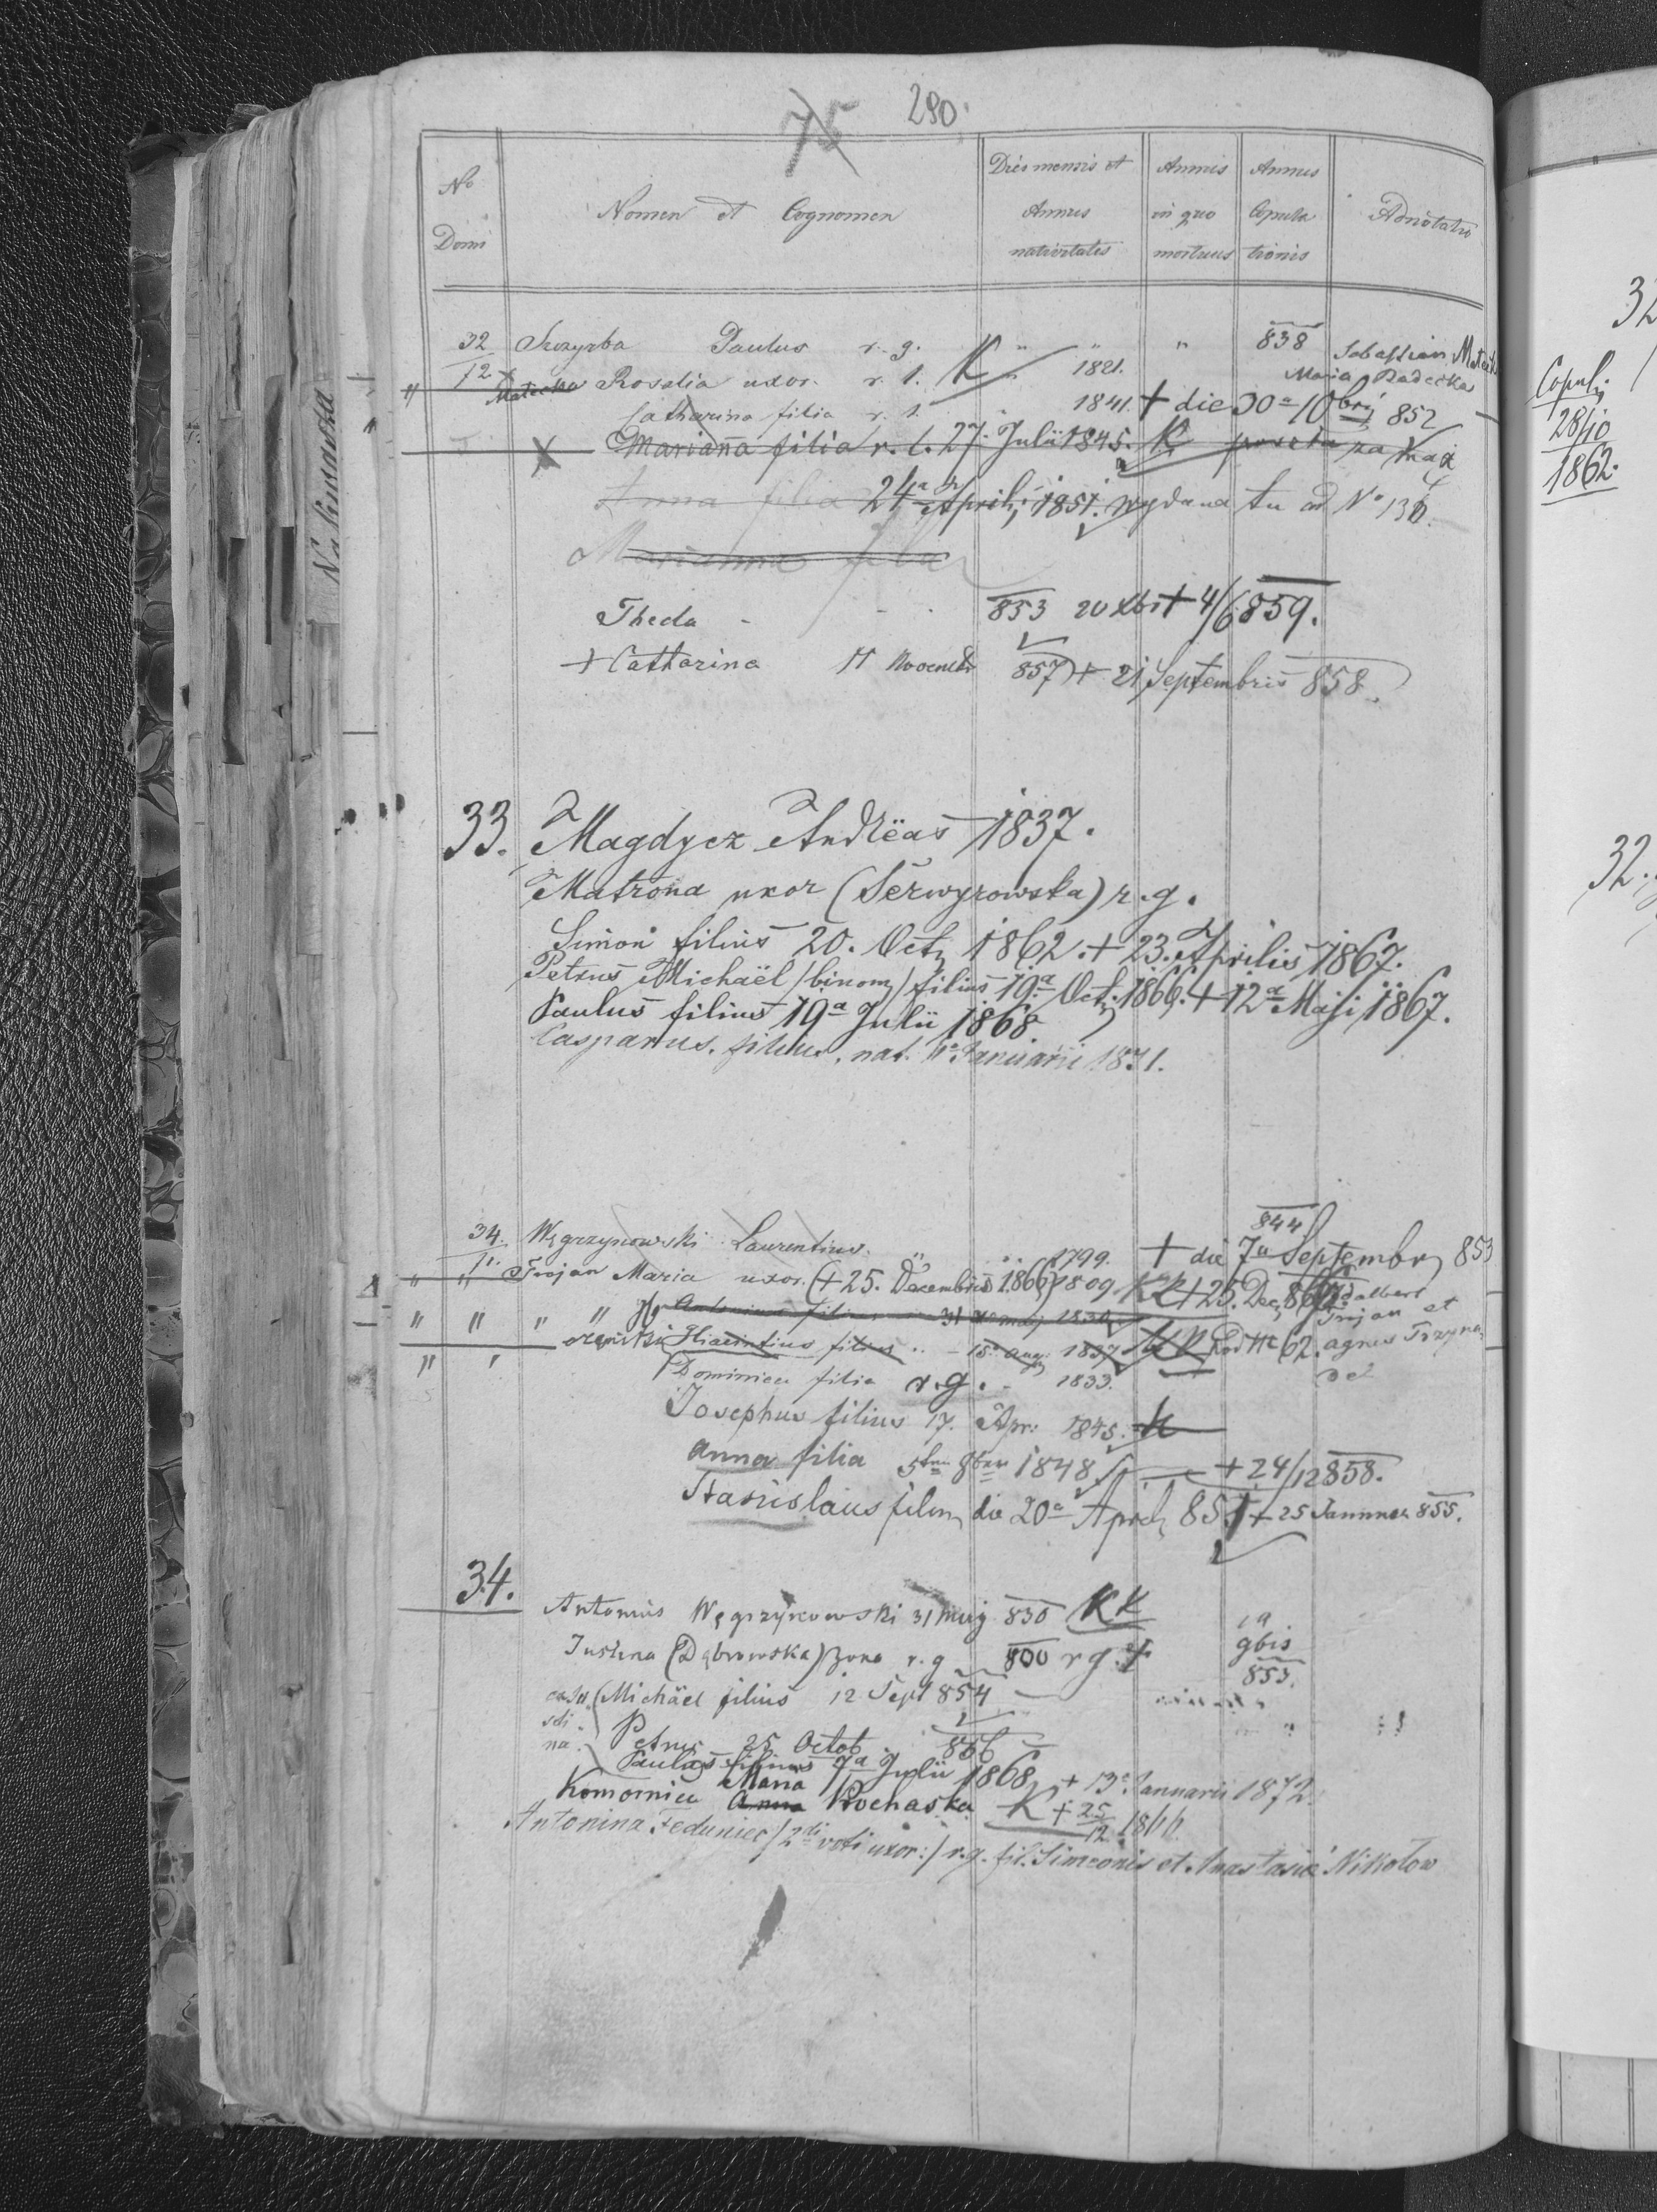 280.
75
No Domi
Nomen et Cognomen
Dies mensis et Annus nativitatis
Annus in quo mortuus
Annus Copula tionis
Adnotatio
32 Paulus r. g. " " " 838 Sebastian
12 Matecka Rosalia uxor. r. l. K " 1821. Maria Radecka
Catharina filia r. l. 1841. + die 30a 10bris 852
X Marianna filia r. l. 27. Julii 1845. K poszła na
Anna filia 24a Aprilis 1851. wydana tu ad No 136.
Marianna filia
Theda - - - 853 20 Xbr + 4/6 859.
+ Catharina 11 Novembr 857 + 21 Septembris 858
33. Magdycz Andreas 1837.
Matrona uxor (Serwyrowska) r. g.
Simon filius 20. Oct. 1862. + 23. Aprilis 1867.
Petrus Michaël /binom/ filius 19a Oct. 1866. + 12a Maji 1867.
Paulus filius 19a Julii 1868
Casparus, filius, nat. Januarii 1871.
34. Węgrzynowski Laurentius. 1799. 844 + die 7a Septembr 853
" " Trojan Maria uxor. (+ 25. Decembris 1866) 1809 + 25. Dec. Adalbert Trojan et
" " " " Antonius filius 31 maj 1830
Hiacintius filius - 15 Aug. 1837 62. agnes
" " Dominica filia r. g. - 1833.
Josephus filius 17. Apr. 1845. K
Anna filia 8br 1848 + 24/12 858.
Stanislaus filius die 20a April 851 + 25 Januar 855.
34.
Antonius Węgrzynowski 31 maij 830 KK
Justina (Dąbrowska) żona r. g 800 r g + 9bis 853.
Michäel filius 12 Sept 854
Petrus 25 Octob 856
Paulus filius 7a Julii 1868 + 13a Januarii 1872.
Komornica Anna Maria Prochaska K + 25/12 1866
Antonina Feduniec /2di voti uxor:/ r. g. fil. Simeonis et Anastasia Nikolow
Copul.
28/10
1862.
32
32.